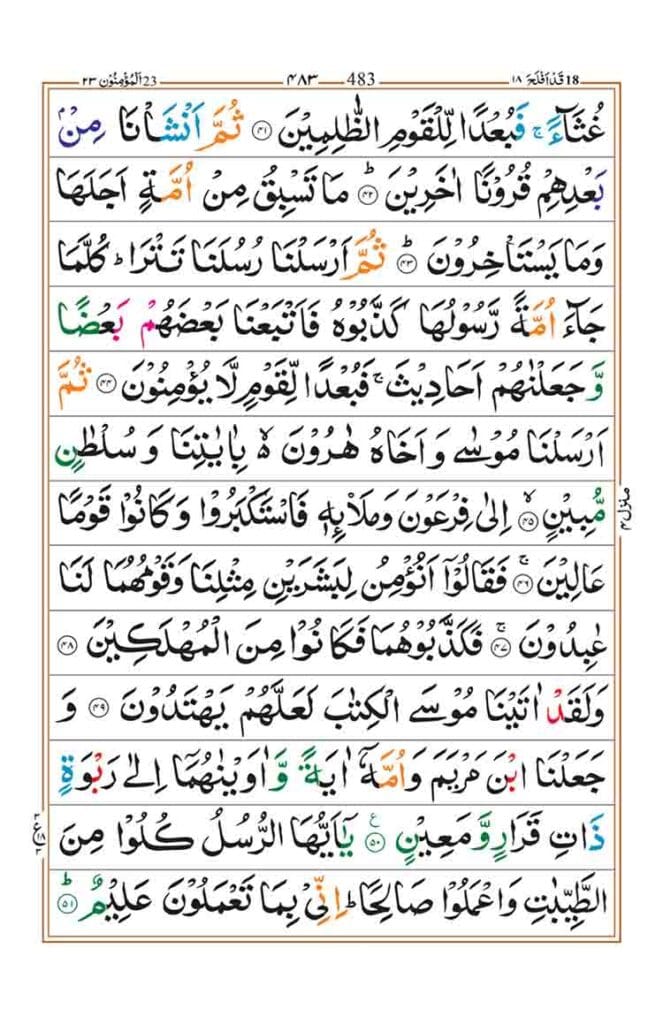 18 قَدْ اَفْلَحَ ۱۸ 483 ۴۸۳ 23 اَلْمُؤْمِنُوْن ۲۳
غُثَآءً ۚ فَبُعْدًا لِّلْقَوْمِ الظّٰلِمِيْنَ ۝۴۱ ثُمَّ اَنْشَاْنَا مِنْۢ
بَعْدِهِمْ قُرُوْنًا اٰخَرِيْنَ ۝۴۲ؕ مَا تَسْبِقُ مِنْ اُمَّةٍ اَجَلَهَا
وَمَا يَسْتَاْخِرُوْنَ ۝۴۳ؕ ثُمَّ اَرْسَلْنَا رُسُلَنَا تَـتْرَا ؕ كُلَّمَا
جَآءَ اُمَّةً رَّسُوْلُهَا كَذَّبُوْهُ فَاَتْبَعْنَا بَعْضَهُمْ بَعْضًا
وَّجَعَلْنٰهُمْ اَحَادِيْثَ ۚ فَبُعْدًا لِّقَوْمٍ لَّا يُؤْمِنُوْنَ ۝۴۴ ثُمَّ
اَرْسَلْنَا مُوْسٰى وَاَخَاهُ هٰرُوْنَ ۙ بِاٰيٰتِنَا وَسُلْطٰنٍ
مُّبِيْنٍ ۝۴۵ۙ اِلٰى فِرْعَوْنَ وَمَلَا۟ئِهٖ فَاسْتَكْبَرُوْا وَكَانُوْا قَوْمًا
عَالِيْنَ ۝۴۶ۚ فَقَالُوْۤا اَنُؤْمِنُ لِبَشَرَيْنِ مِثْلِنَا وَقَوْمُهُمَا لَنَا
عٰبِدُوْنَ ۝۴۷ۚ فَكَذَّبُوْهُمَا فَكَانُوْا مِنَ الْمُهْلَكِيْنَ ۝۴۸
وَلَقَدْ اٰتَيْنَا مُوْسَى الْكِتٰبَ لَعَلَّهُمْ يَهْتَدُوْنَ ۝۴۹ وَ
جَعَلْنَا ابْنَ مَرْيَمَ وَاُمَّهٗۤ اٰيَةً وَّاٰوَيْنٰهُمَاۤ اِلٰى رَبْوَةٍ
ذَاتِ قَرَارٍ وَّمَعِيْنٍ ۝۵۰ ع يٰۤاَيُّهَا الرُّسُلُ كُلُوْا مِنَ
الطَّيِّبٰتِ وَاعْمَلُوْا صَالِحًا ؕ اِنِّىْ بِمَا تَعْمَلُوْنَ عَلِيْمٌ ۝۵۱ؕ
منزل ۴